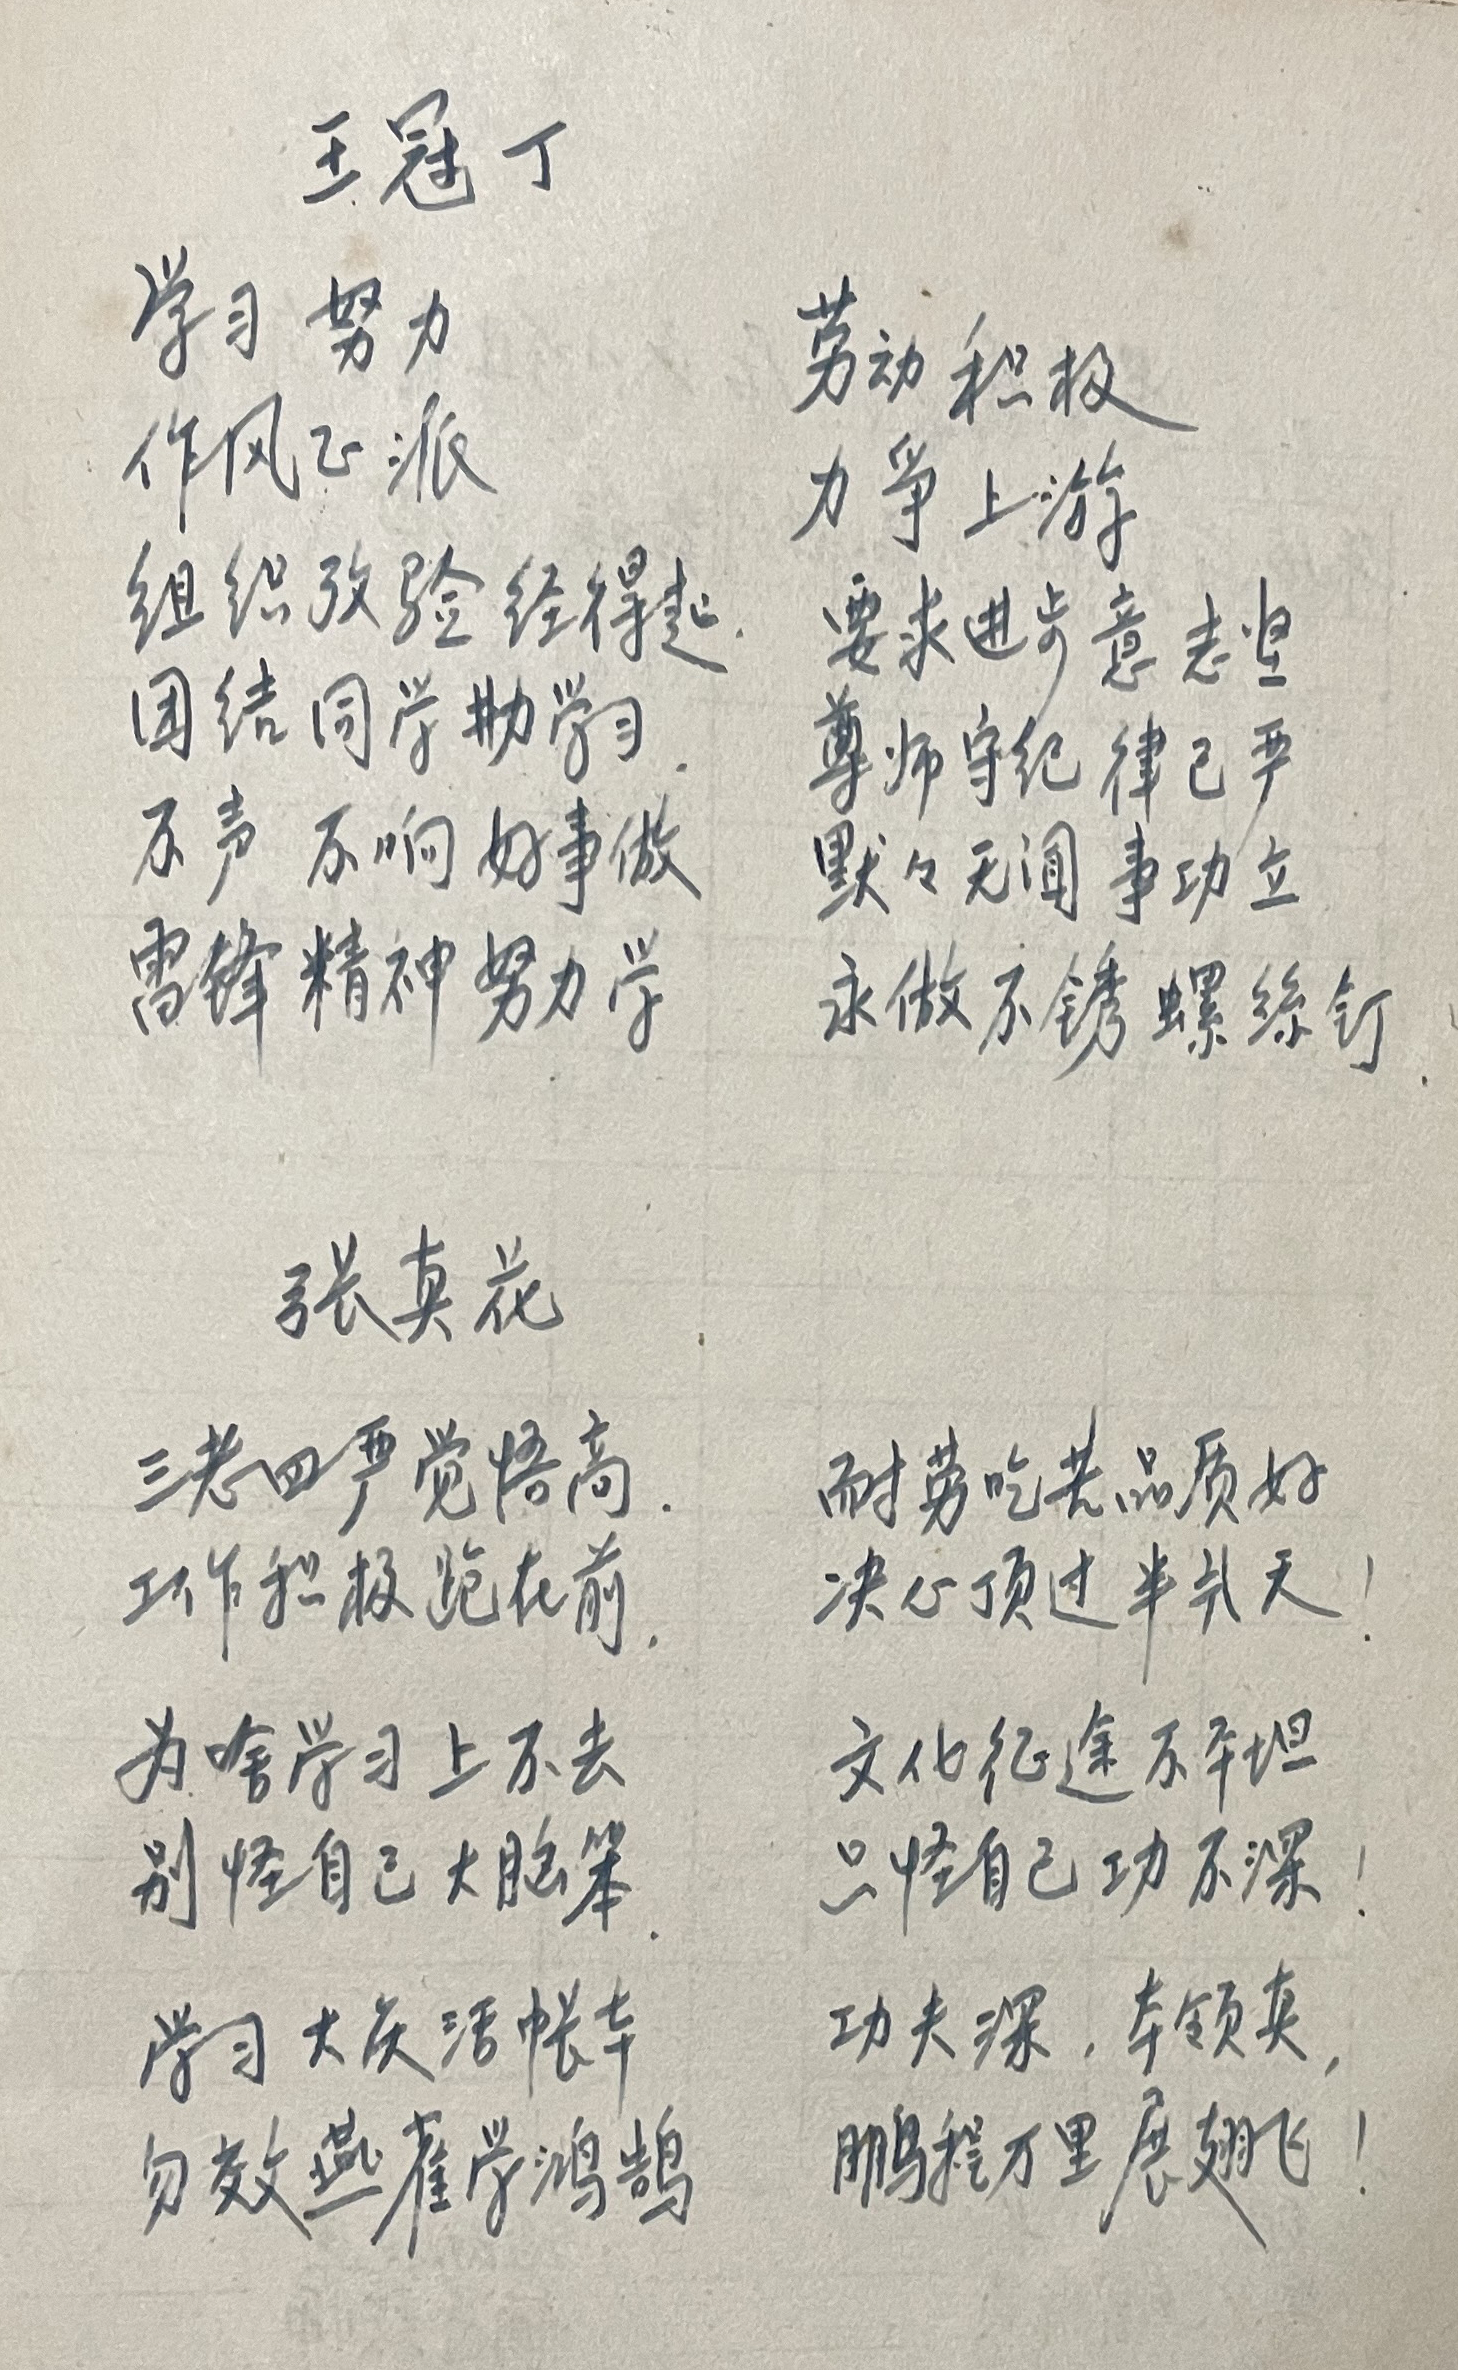 王冠丁
学习努力
劳动积极
作风正派
力争上游
组织攷验经得起.
要求进步意志坚
团结同学勤学习.
尊师守纪律己严
不声不响好事做
默々无闻事功立
雷锋精神努力学
永做不锈螺丝钉.
张真花
三老四严觉悟高.
耐劳吃苦品质好
工作积极跑在前.
决心顶过半扎天!
为啥学习上不去
文化征途不平坦
别怪自己大脑笨.
只怪自己功不深!
学习大庆活帐本
功夫深,本领真,
勿效燕雀学鸿鹄
鹏程万里展翅飞!